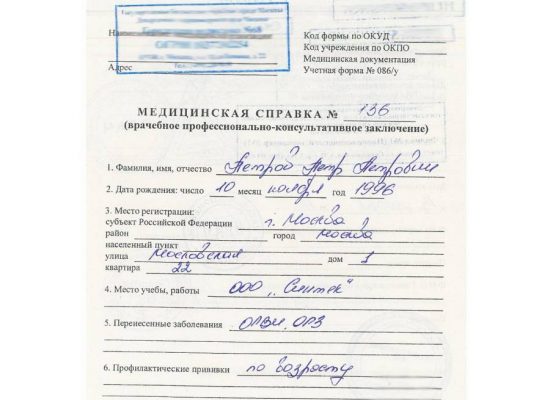 Государственное
Наименование
Адрес
Код формы по ОКУД
Код учреждения по ОКПО
Медицинская документация
Учетная форма № 086/у
МЕДИЦИНСКАЯ СПРАВКА № 136
(врачебное профессионально-консультативное заключение)
1. Фамилия, имя, отчество Петров Петр Петрович
2. Дата рождения: число 10 месяц ноября год 1996
3. Место регистрации:
субъект Российской Федерации г. Москва
район город Москва
населенный пункт
улица Московская дом 1
квартира 22
4. Место учебы, работы ООО „Синтек"
5. Перенесенные заболевания ОРВИ, ОРЗ
6. Профилактические прививки по возрасту